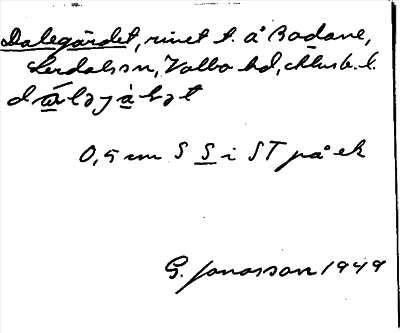 Dalegärdet, rivet t. å Badane,
Lerdalssn, Valbo hd, Älvsb. l.
dᾱ̲́ləjὰ̲ḷət
0,5 cm S S̲ i ST på ek
G. Jonasson 1949